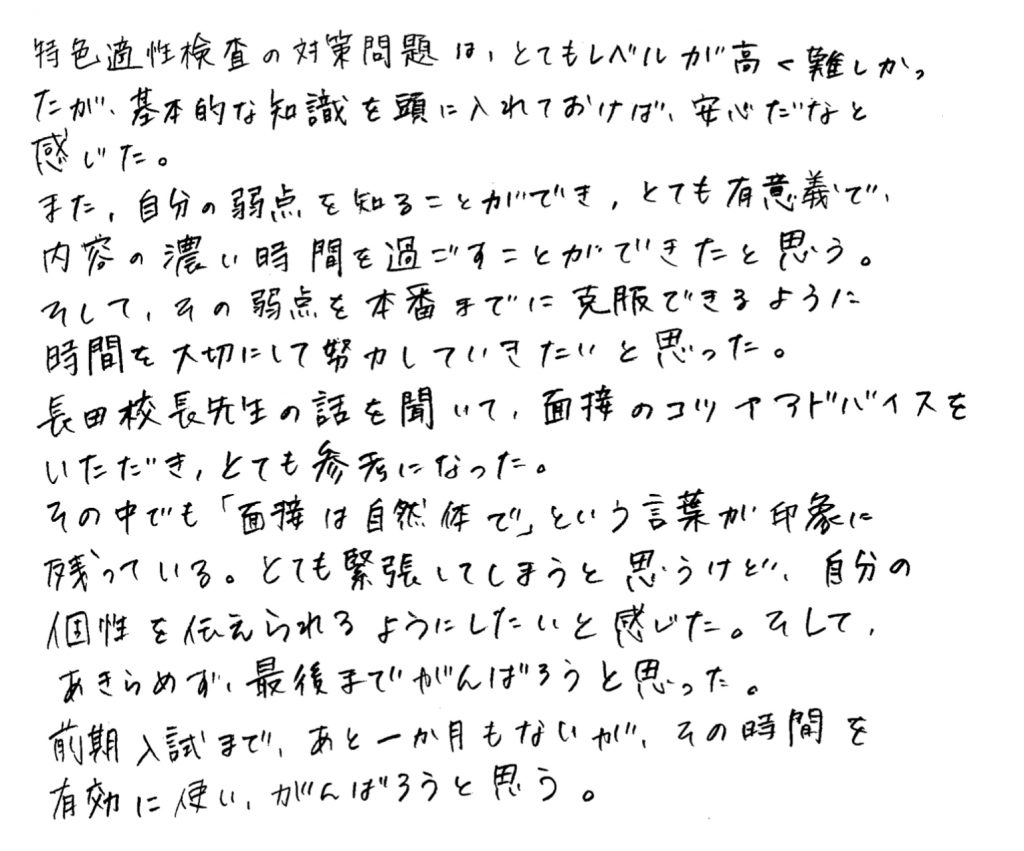 特色適性検査の対策問題は、とてもレベルが高く難しかっ
たが、基本的な知識を頭に入れておけば、安心だなと
感じた。
また、自分の弱点を知ることができ、とても有意義で、
内容の濃い時間を過ごすことができたと思う。
そして、その弱点を本番までに克服できるように
時間を大切にして努力していきたいと思った。
長田校長先生の話を聞いて、面接のコツやアドバイスを
いただき、とても参考になった。
その中でも「面接は自然体で」という言葉が印象に
残っている。とても緊張してしまうと思うけど、自分の
個性を伝えられるようにしたいと感じた。そして、
あきらめず、最後までがんばろうと思った。
前期入試まで、あと一か月もないが、その時間を
有効に使い、がんばろうと思う。